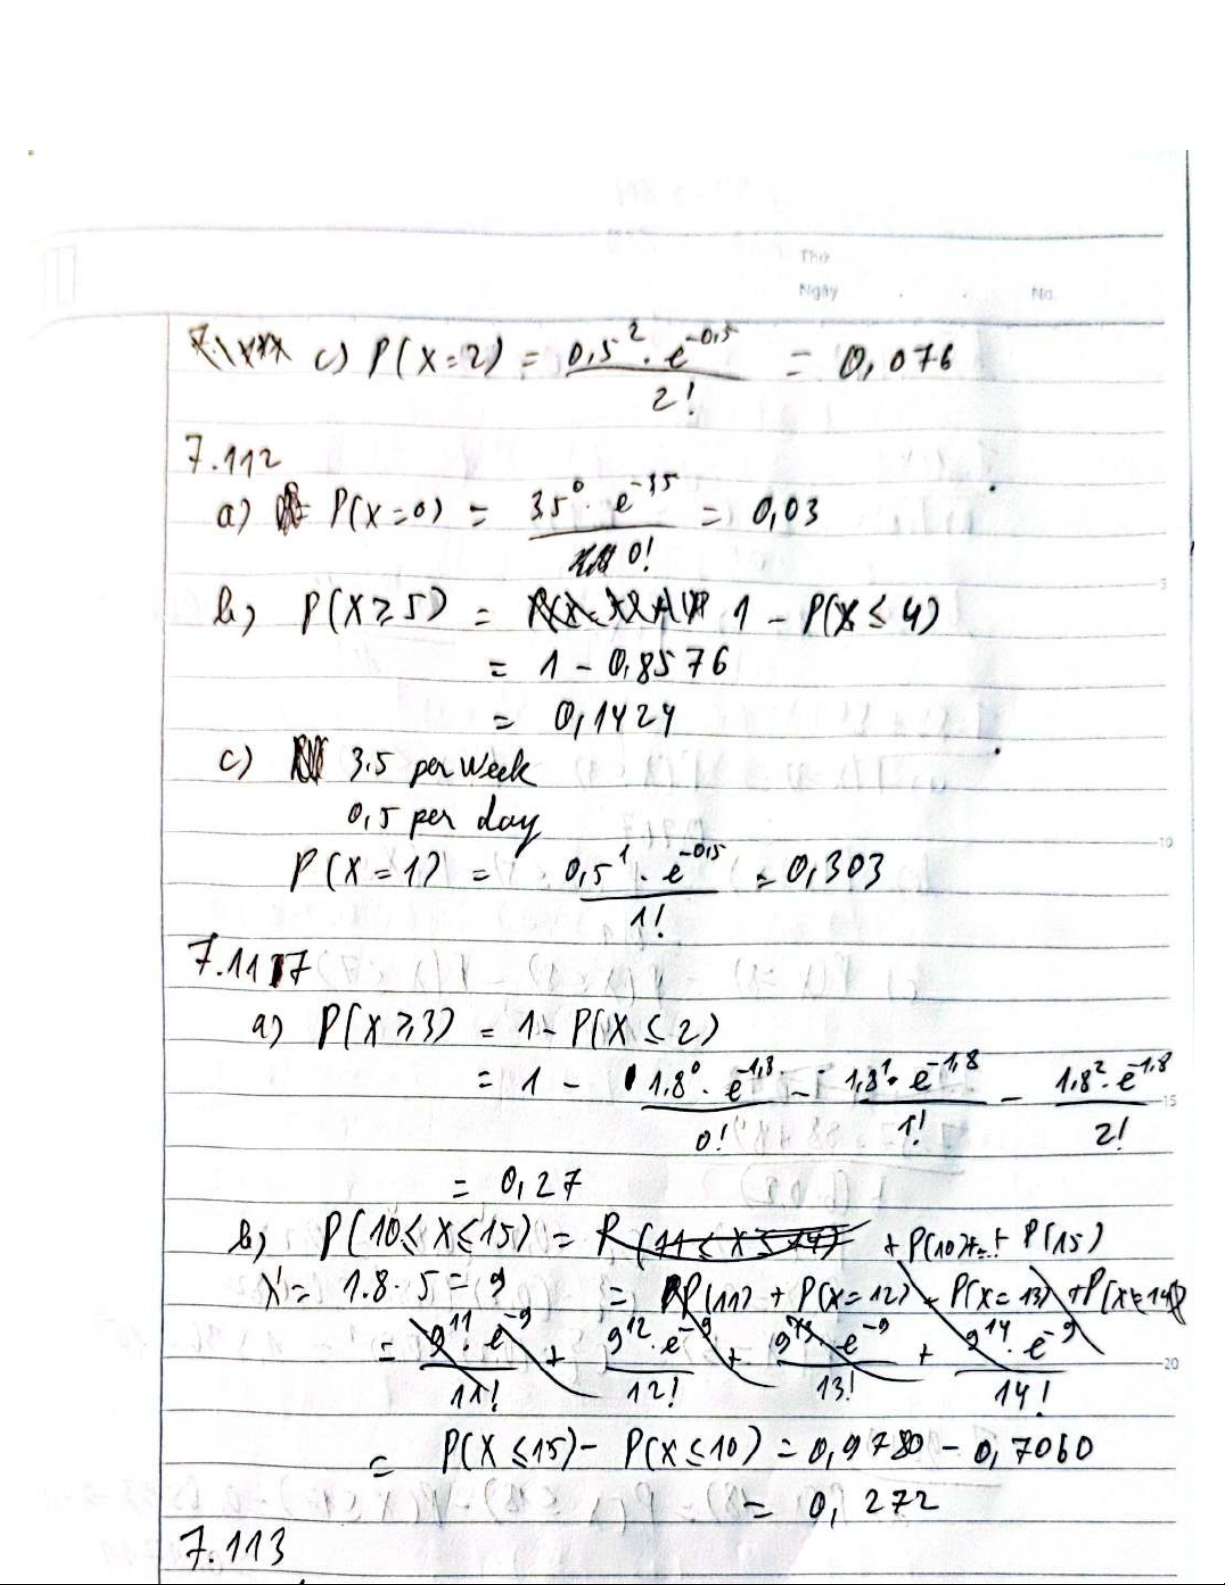 Thứ
Ngày . . No.
c) P(X=2) = 0,5² · e^-0,5 / 2! = 0,076
7.112
a) P(X=0) = 3.5⁰ · e^-3.5 / 0! = 0,03
b) P(X ≥ 5) = 1 - P(X ≤ 4)
= 1 - 0,8576
= 0,1424
c) 3.5 per week
0,5 per day
P(X=1) = 0,5¹ · e^-0,5 / 1! = 0,303
7.117
a) P(X ≥ 3) = 1 - P(X ≤ 2)
= 1 - 1.8⁰ · e^-1,8 / 0! - 1,8¹ · e^-1,8 / 1! - 1.8² · e^-1.8 / 2!
= 0,27
b) P(10 ≤ X ≤ 15) = P(11 ≤ X ≤ 14) + P(10)+...+ P(15)
λ' = 1.8 · 5 = 9 = P(11) + P(X=12) + P(X=13) + P(X=14)
= 9¹¹ · e^-9 / 11! + 9¹² · e^-9 / 12! + 9¹³ · e^-9 / 13! + 9¹⁴ · e^-9 / 14!
= P(X ≤ 15) - P(X ≤ 10) = 0,9780 - 0,7060
= 0,272
7.113
5
10
15
20